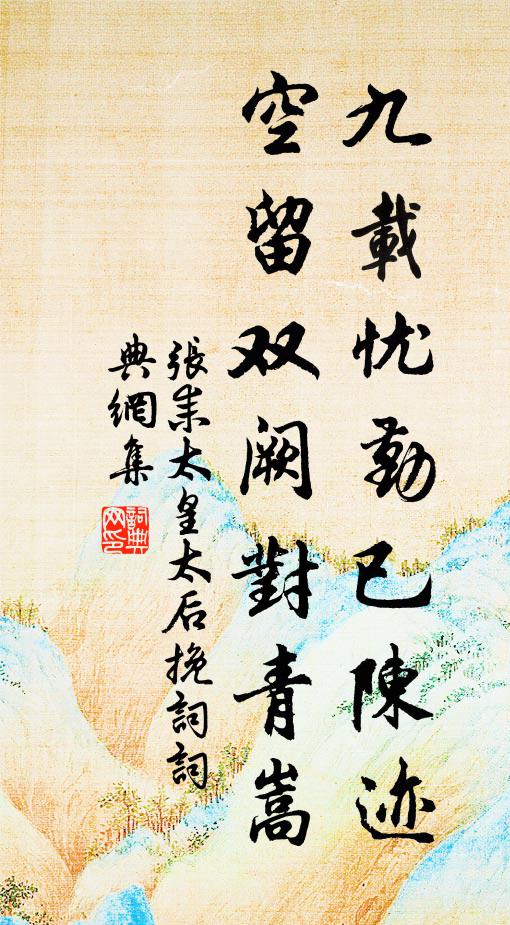 九載忧勤已陳迹
空留双阙對青嵩
張耒太皇太后挽詞詞
典網集
詞典
网印